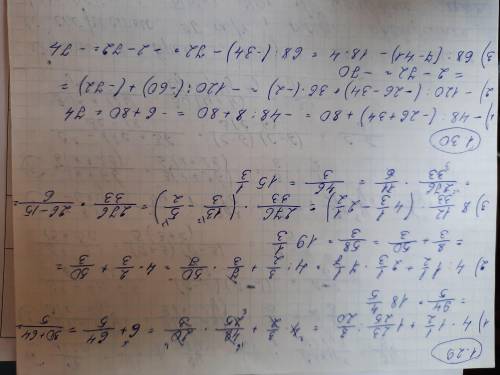 1.29
1) 4 · 1 1/2 + 1 23/25 : 3/20 = 4 · 3/2 + 48/25 · 20/3 = 6 + 64/5 = (30+64)/5
= 94/5 = 18 4/5
2) 4 : 1 1/2 + 2 1/3 · 7 1/7 = 4 : 3/2 + 7/3 · 50/7 = 4 · 2/3 + 50/3 =
= 8/3 + 50/3 = 58/3 = 19 1/3
3) 8 12/33 · (4 1/3 - 2 1/2) = 276/33 · (13/3 - 5/2) = 276/33 · (26-15)/6 =
= 276/33 · 11/6 = 46/3 = 15 1/3
1.30
1) -48 : (-26+34) + 80 = -48 : 8 + 80 = -6 + 80 = 74
2) -120 : (-26-34) + 36 · (-2) = -120 : (-60) + (-72) =
= 2 - 72 = -70
3) 68 : (7-41) - 18 · 4 = 68 : (-34) - 72 = -2 - 72 = -74